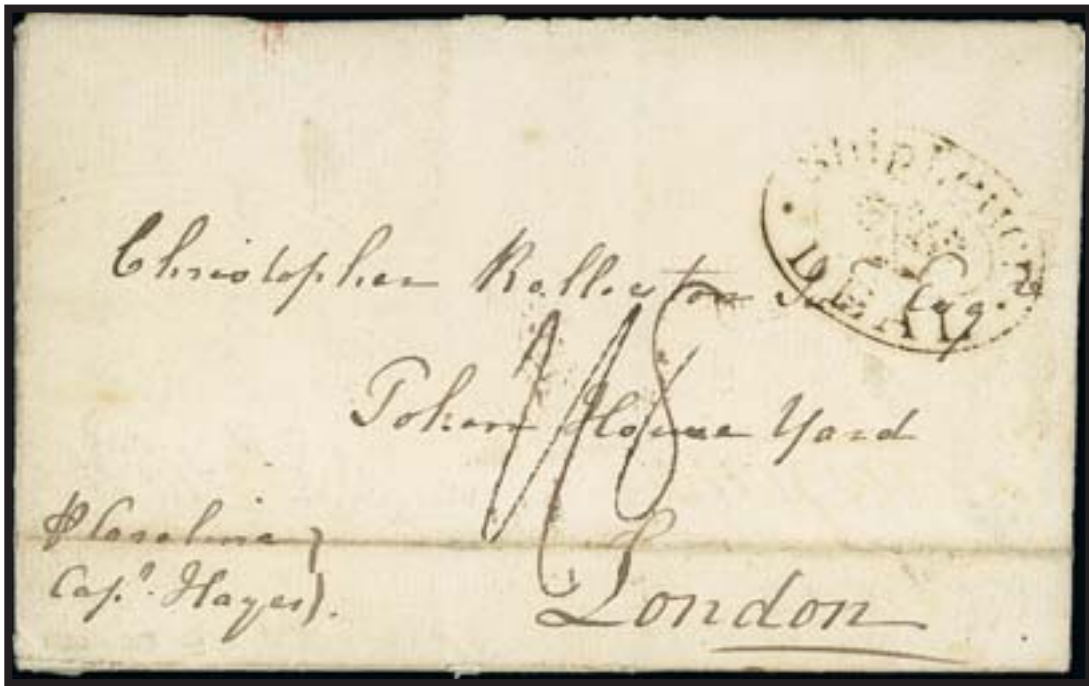 Ship Letter
DEAL
Christopher Rolleston Esq.
Token House Yard
London
p Carolina
Capt. Hayes